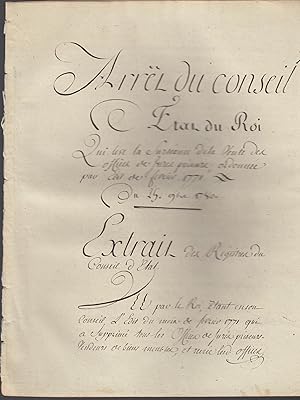 Arrêt du conseil
Etat du Roi
Qui leve la Surseance de la Vente des
offices de jurés priseurs ordonnée
par Edit de fevrier 1771
Du 25. 9bre 1780
Extrait des Registres du
Conseil d'Etat.
Vu par le Roi, Etant en son
Conseil, L'Edit du mois de fevrier 1771 qui
a Supprimé tous les Offices de jurés priseurs
Vendeurs de biens meubles et créé les offices